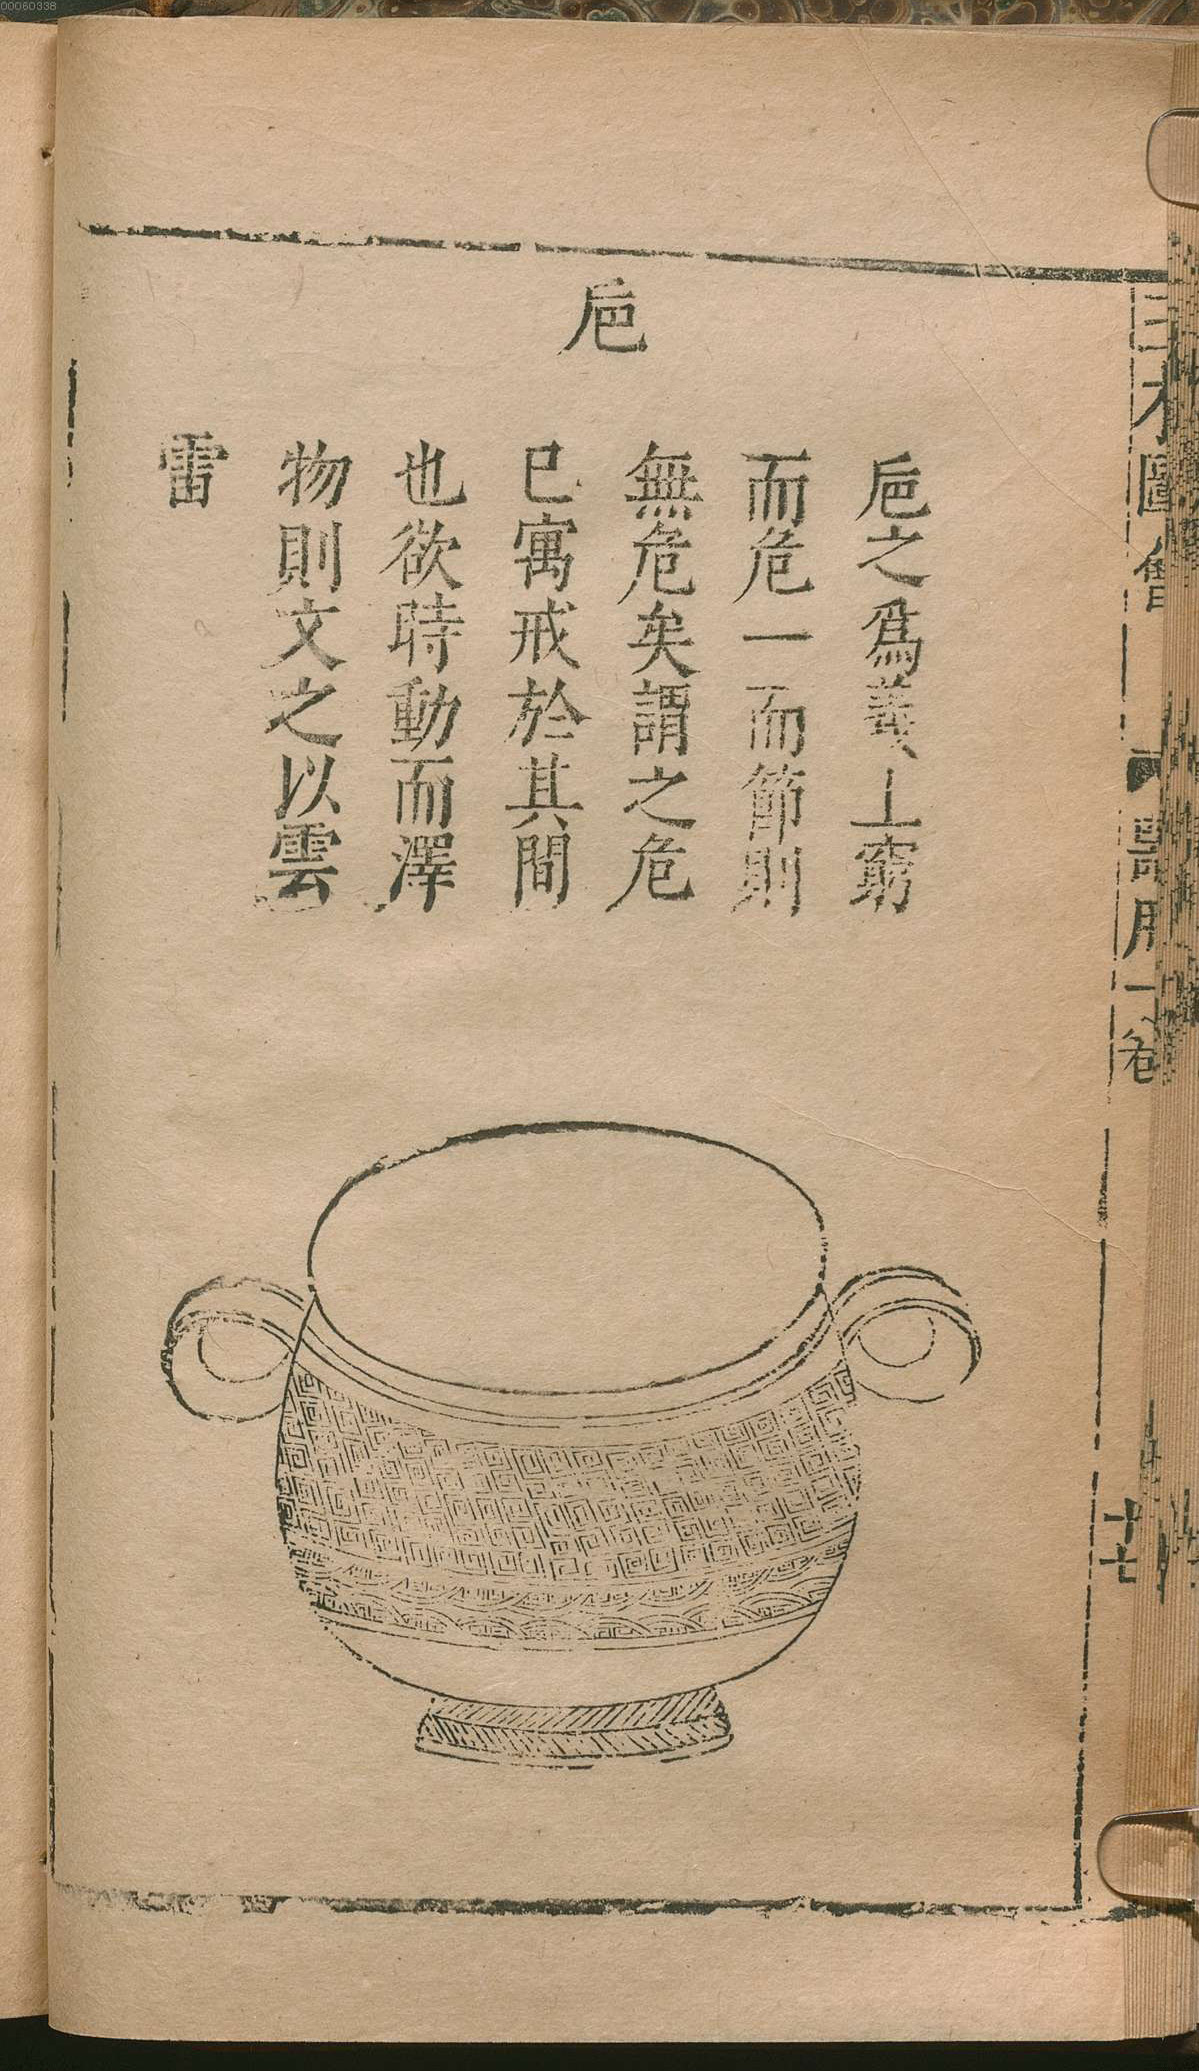 00060338
巵
巵之爲義上窮
而危一而節則
無危矣謂之危
已寓戒於其間
也欲時動而澤
物則文之以雲
雷
三才圖會
器用一卷
十七